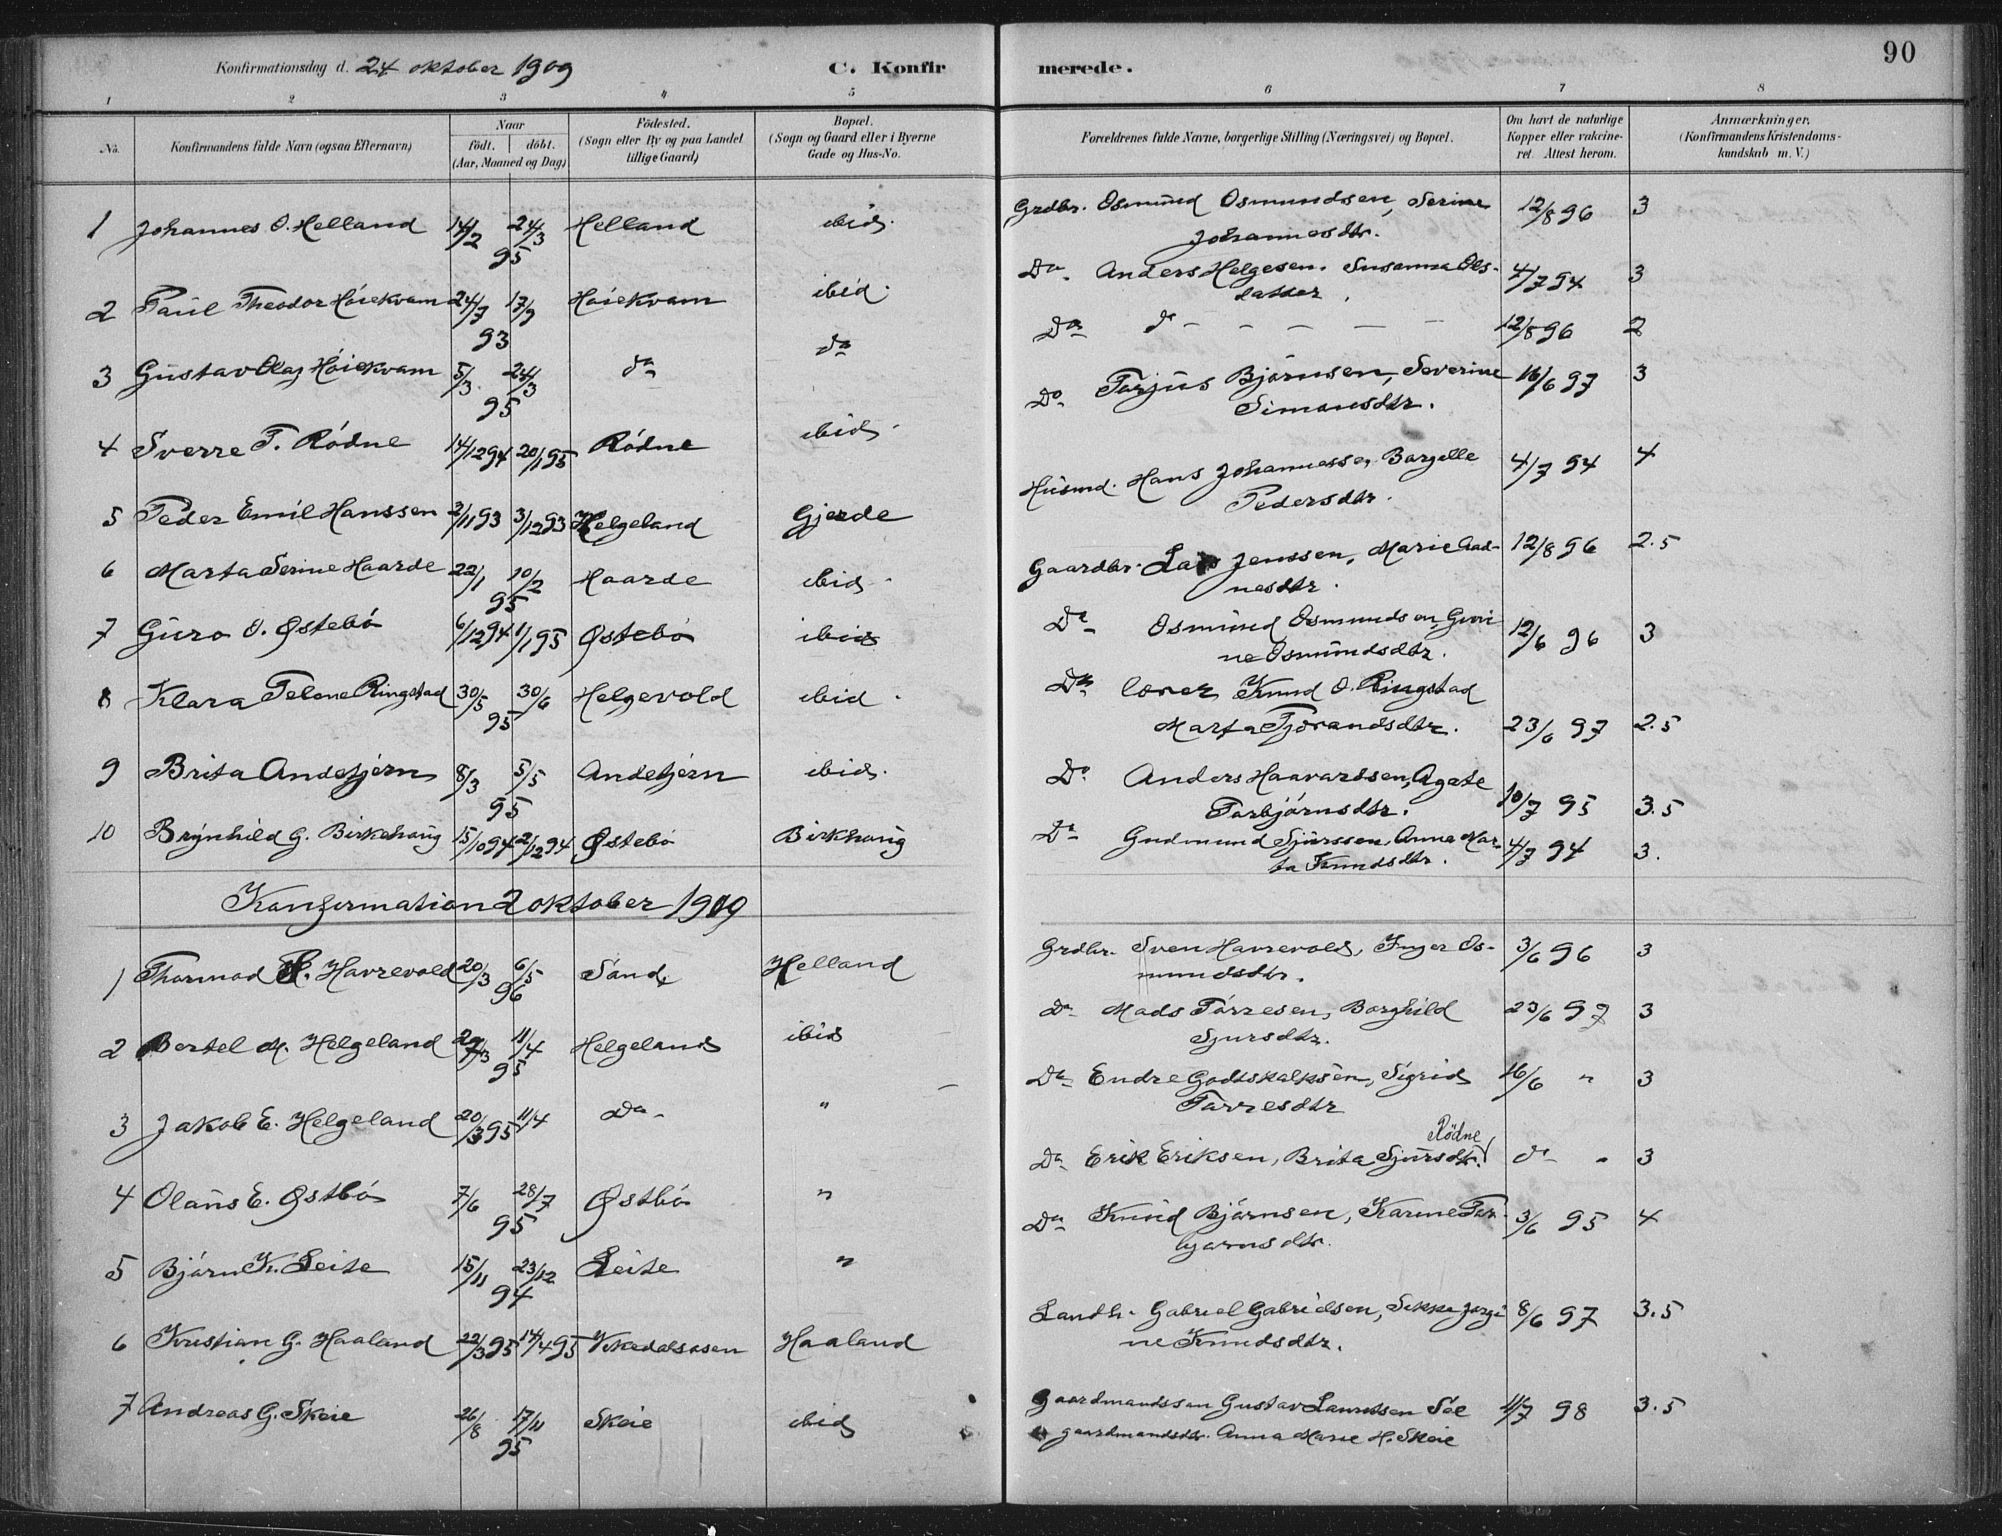 90
Konfirmationsdag d. 24 oktober 1909 C. Konfirmerede.
1 2 3 4 5 6 7 8
No. Konfirmandens fulde Navn (ogsaa Efternavn) Naar født. døbt. (Aar, Maaned og Dag) Fødested. (Sogn eller By og paa Landet tillige Gaard) Bopæl. (Sogn og Gaard eller i Byerne Gade og Hus-No. Forældrenes fulde Navne, borgerlige Stilling (Næringsvei) og Bopæl. Om havt de naturlige Kopper eller vakcineret. Attest herom. Anmærkninger. (Konfirmandens Kristendomskundskab m. V.)
1 Johannes O. Helland 14/2 24/3 95 Helland ibid. Grdbr. Osmund Osmundssen, Serine Johannesdtr. 12/8 96 3
2 Paul Theodor Höiekvam 24/7 17/9 93 Höiekvam ibid. Do Anders Helgesen. Susanna Olsdatter. 4/7 94 3
3 Gustav Olaf Höiekvam 5/3 24/3 95 do do Do do - - - - - 12/8 96 2
4 Sverre T. Rödne 14/12 94 20/1 95 Rödne ibid. Do Torjus Björnsen, Severine Simonsdtr. 16/6 97 3
5 Peder Emil Hanssen 2/11 93 3/12 93 Helgeland Gjerde Husmd. Hans Johannessen Borgelle Pedersdtr. 4/7 94 4
6 Marta Serine Haarde 22/1 10/2 95 Haarde ibid. Gaardbr. Lars Jenssen, Marie Aadnesdtr. 12/8 96 2.5
7 Guro O. Østebö 6/12 94 1/1 95 Østebö ibid Do Osmund Osmundsen, Gurine Osmundsdtr. 12/6 96 3
8 Klara Telene Ringstad 30/5 30/6 95 Helgevold ibid. Do lærer Knud O. Ringstad Marta Tjörandsdtr. 23/6 97 2.5
9 Brita Andetjern 8/3 5/5 95 Andetjern ibid. Do Anders Haavardsen, Agate Torbjörnsdtr. 10/7 95 3.5
10 Brynhild G. Birkehaug 15/10 94 2/12 94 Østebö Birkhaug Do Gudmund Sjurssen, Anna Marta Knudsdtr. 4/7 94 3.
Konfirmation 2 oktober 1909
1 Thormod S. Havrevold 20/3 6/5 96 Sand Helland Grdbr. Sven Havrevold, Inger Osmundsdtr. 3/6 96 3
2 Bertel M. Helgeland 29/3 11/4 95 Helgeland ibid Do Mads Törresen, Borghild Sjursdtr. 23/6 97 3
3 Jakob E. Helgeland 20/3 95 11/4 Do " Do Endre Godtskalksen, Sigrid Törresdtr 16/6 " 3
4 Olaus E. Østbö 7/6 28/7 95 Østbö " Do Erik Eriksen, Brita Sjursdtr. Rödne do " 3
5 Björn K. Leite 15/11 23/12 94 Leite " Do Knud Björnsen, Karine Torbjørnsdtr. 3/6 95 4
6 Kristian G. Haaland 22/3 95 14/4 95 Vikedalsosen Haaland Landh. Gabriel Gabrielsen, Sikke Jorgine Knudsdtr. 8/6 97 3.5
7 Andreas G. Skeie 26/8 17/11 95 Skeie ibid Gaardmandssøn Gustav Lauritssen Söe gaardmandsdtr. Anna Marie H. Skeie 4/7 98 3.5